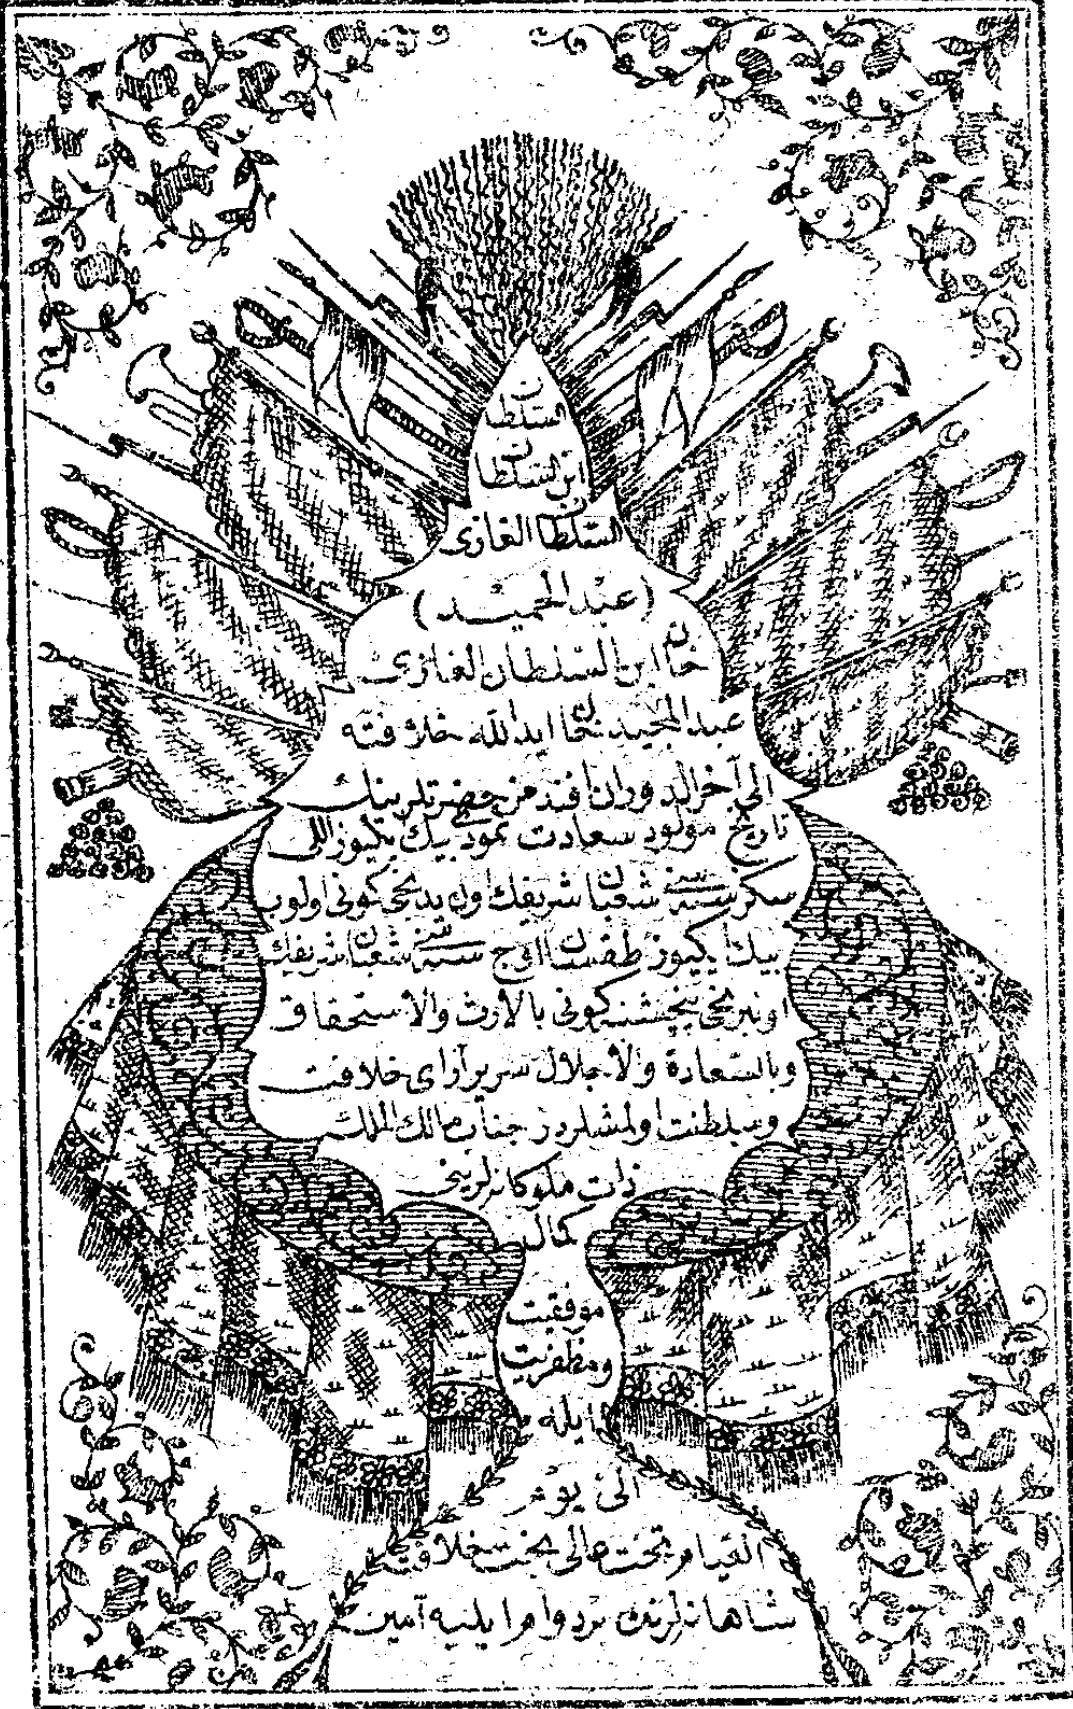 السلطان
ابن السلطان
السلطان الغازى
(عبد الحميد)
خان ابن السلطان الغازى
عبد المجيد خان ايد الله خلافته
الى آخر الدوران افندمز حضرتلرينك
تاريخ مولود سعادت نمود بيك ايكيوز اللى
سكز سنه سى شعبان شريفك اون يدنجى كونى اولوب
بيك ايكيوز طقسان اوچ سنه سى شعبان شريفك
اون برنجى پنجشنبه كونى بالارث والاستحقاق
وبالسعادة والاجلال سرير آراى خلافت
وسلطنت اولمشلردر جناب مالك الملك
ذات ملوكانه لرينى
كمال
موفقيت
ومظفريت
ايله
الى يوم
القيام تخت عالى بخت خلافت
شاهانه لرنده بردوام ايليه آمين